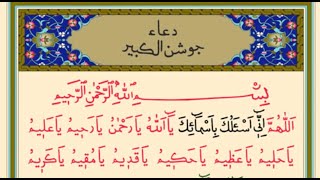 دعاء
جوشن الكبير
بِسْمِ اللهِ الرَّحْمٰنِ الرَّحِيمِ
اَللّٰهُمَّ اِنِّي اَسْئَلُكَ بِاَسْمَائِكَ يَا اَللهُ يَا رَحْمٰنُ يَا رَحِيمُ يَا عَلِيمُ
يَا حَلِيمُ يَا عَظِيمُ يَا حَكِيمُ يَا قَدِيمُ يَا مُقِيمُ يَا كَرِيمُ